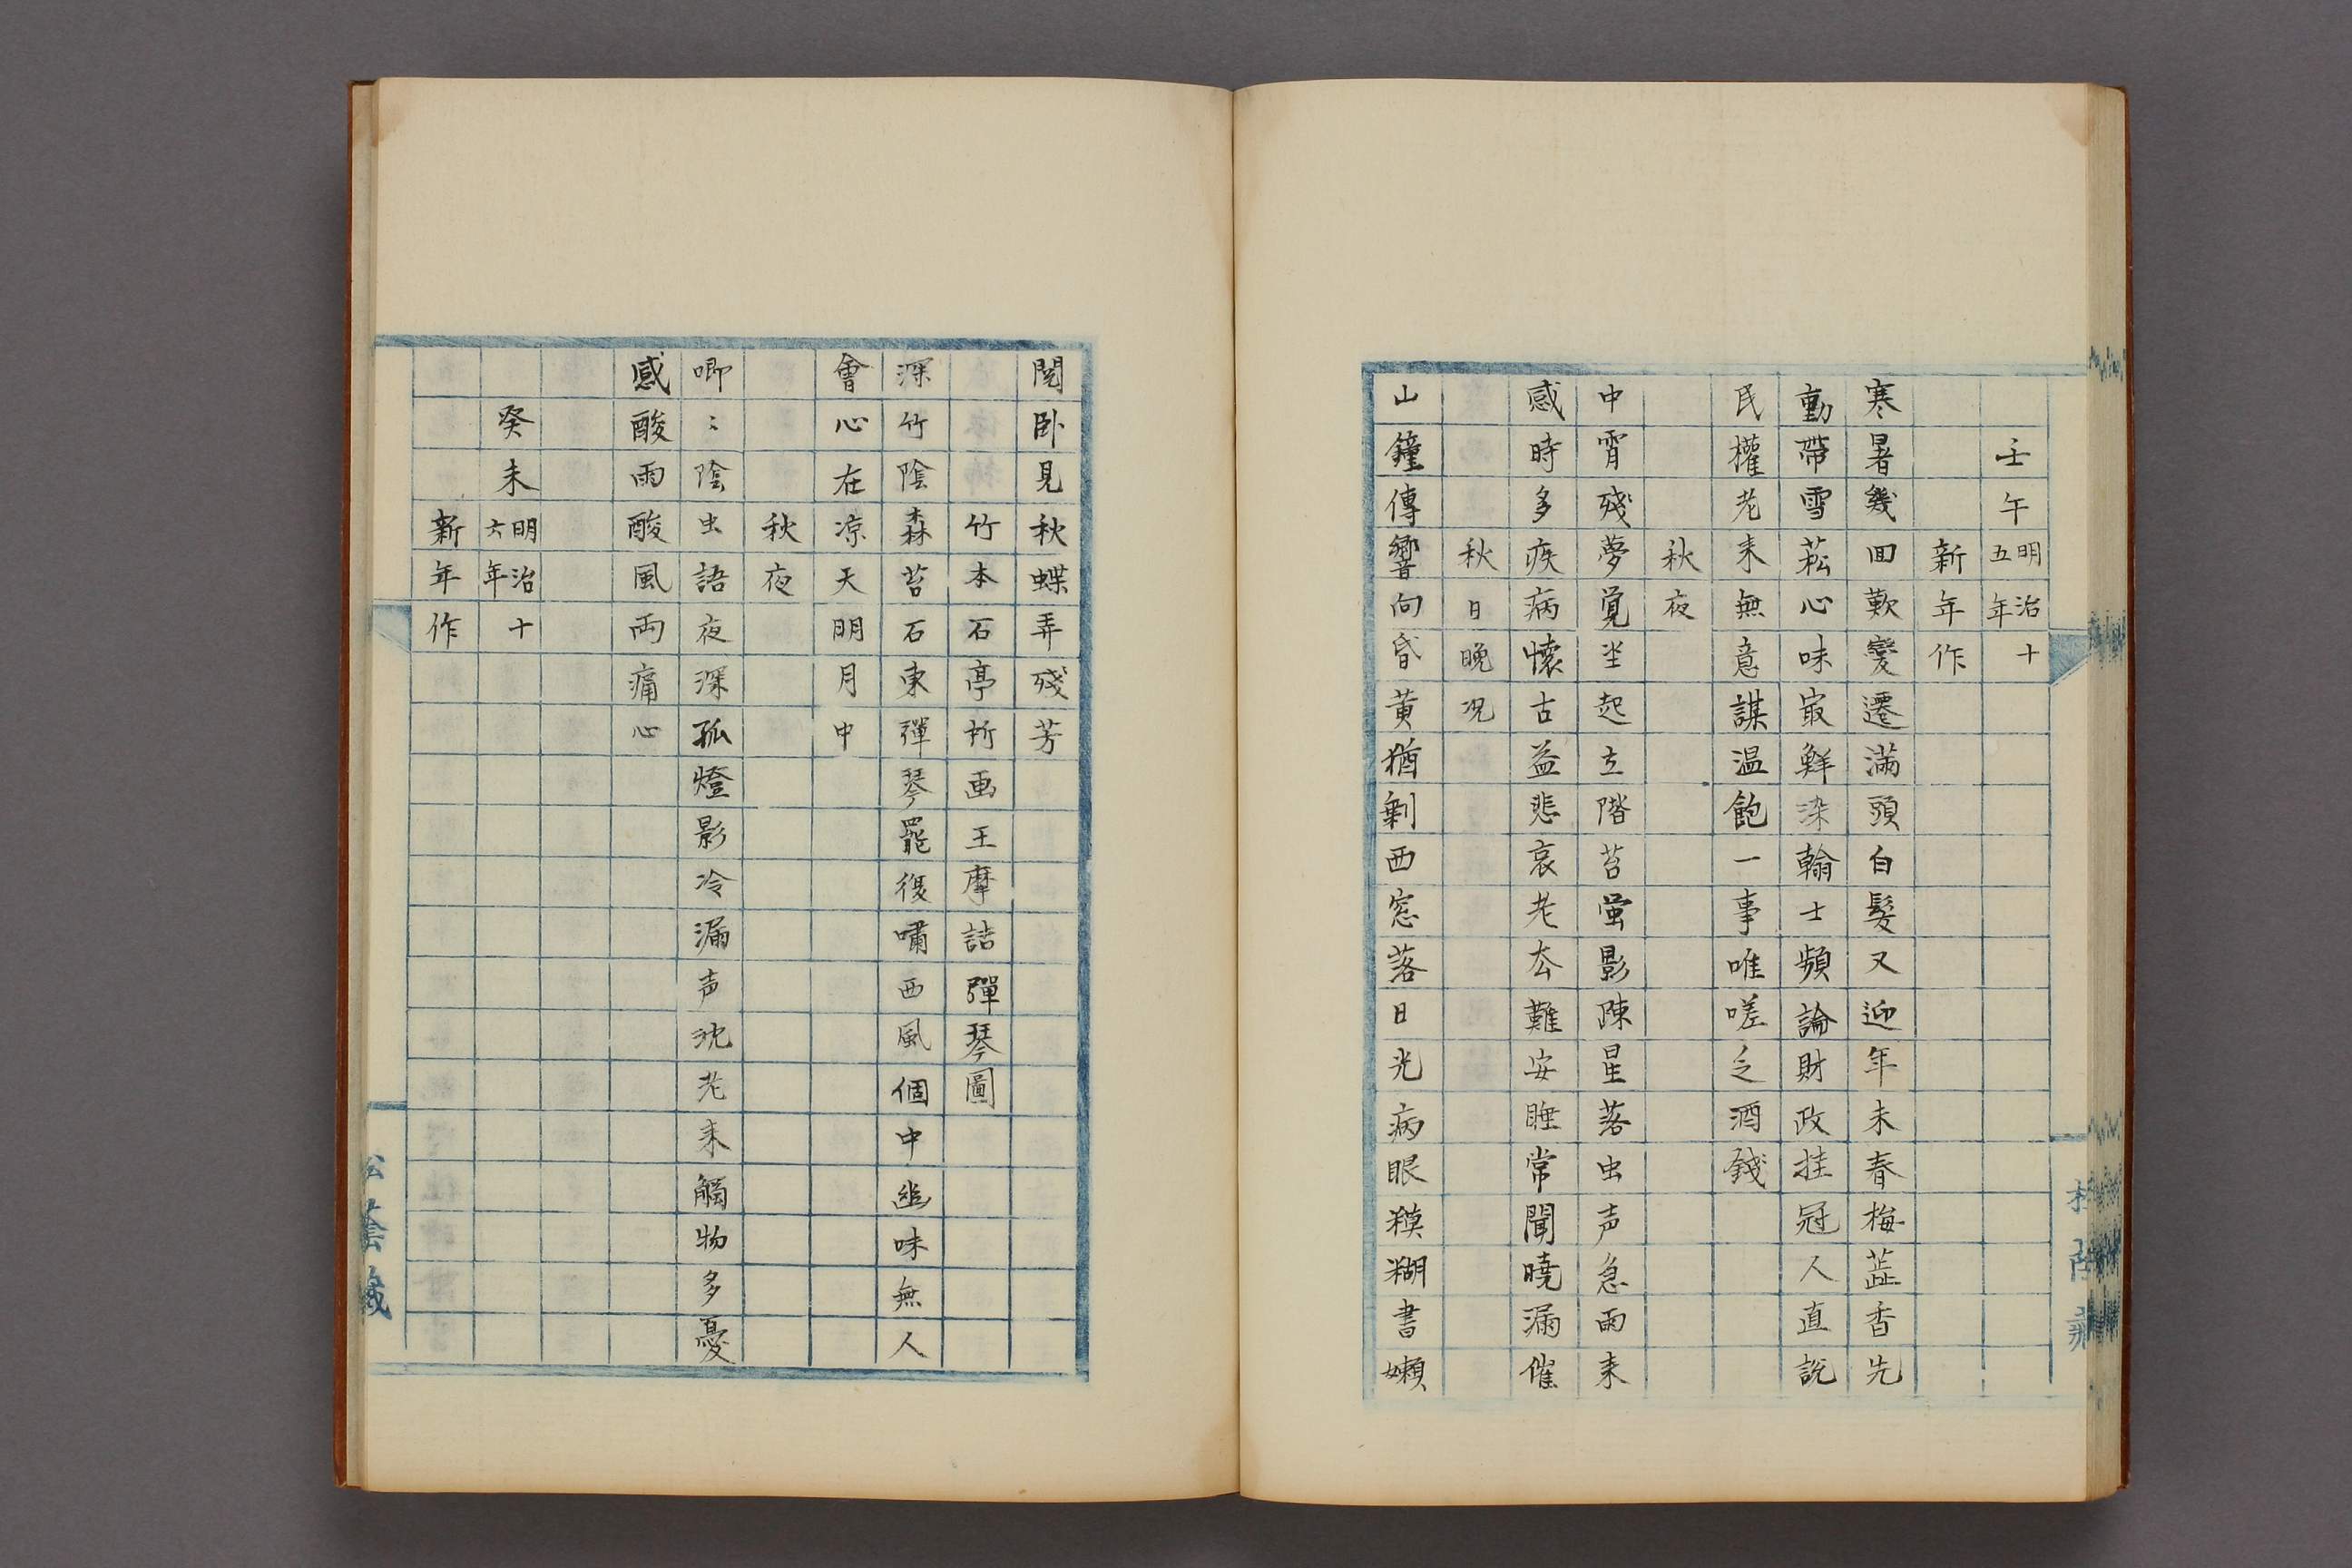 壬午明治十五年
新年作
寒暑幾回歎變遷滿頭白髮又迎年未春梅蕋香先
動帶雪菘心味㝡鮮染翰士頻論財政挂冠人直說
民權老来無意謀温飽一事唯嗟乏酒錢
秋夜
中宵殘夢覚坐起立階苔蛍影疎星落虫声急雨来
感時多疾病懷古益悲哀老去難安睡常聞曉漏催
秋日晚况
山鐘傳響向昏黄猶剰西窓落日光病眼糢糊書嬾
閲卧見秋蝶弄殘芳
竹本石亭所画王摩詰彈琴圖
深竹陰森苔石東彈琴罷復嘯西風個中幽味無人
會心在凉天明月中
秋夜
唧〻陰虫語夜深孤燈影冷漏声沈老来觸物多憂
感酸雨酸風両痛心
癸未明治十六年
新年作
松蔭藏